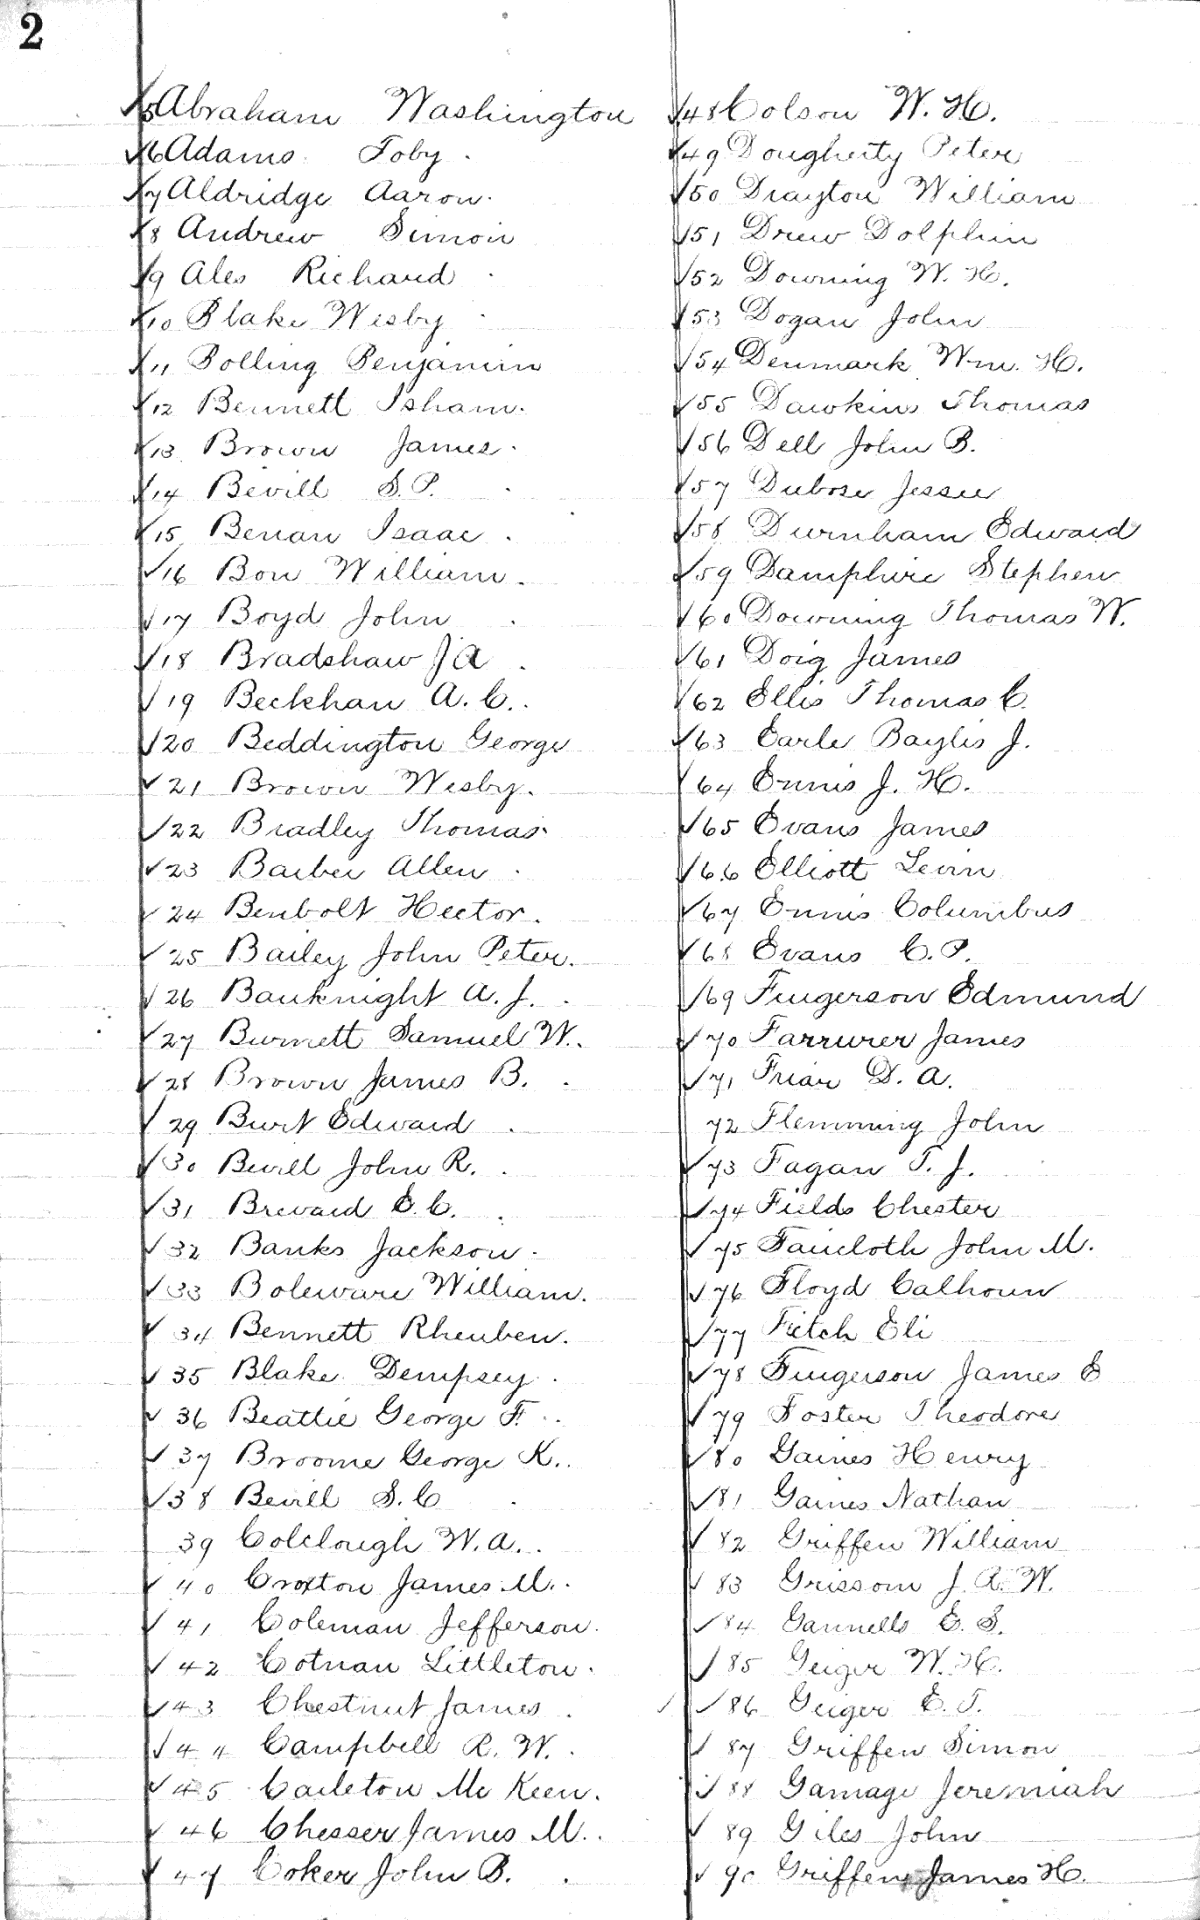 2
5 Abraham Washington
6 Adams Toby
7 Aldridge Aaron
8 Andrew Simon
9 Ales Richard
10 Blake Wesby
11 Bolling Benjamin
12 Bennett Isham
13 Brown James
14 Bevill S. P.
15 Benan Isaac
16 Bon William
17 Boyd John
18 Bradshaw J A
19 Beckham A. C.
20 Beddington George
21 Brown Wesby
22 Bradley Thomas
23 Barber Allen
24 Benbolt Hector
25 Bailey John Peter
26 Bauknight A. J.
27 Burnett Samuel W.
28 Brown James B.
29 Burt Edward
30 Bevill John R.
31 Brevard E. C.
32 Banks Jackson
33 Boleware William
34 Bennett Rheuben
35 Blake Dempsey
36 Beattie George F.
37 Broome George K.
38 Bevill S. C
39 Colclough W. A.
40 Croxton James M.
41 Coleman Jefferson
42 Cotman Littleton
43 Chestnut James
44 Campbell R. W.
45 Carleton Mc Keen
46 Chesser James M.
47 Coker John B.
48 Colson W. H.
49 Dougherty Peter
50 Drayton William
51 Drew Dolphin
52 Downing W. H.
53 Dogan John
54 Denmark Wm. H.
55 Dawkins Thomas
56 Dell John B.
57 Dubose Jessee
58 Durnham Edward
59 Damphire Stephen
60 Downing Thomas W.
61 Doig James
62 Ellis Thomas C.
63 Earle Baylis J.
64 Ennis J. H.
65 Evans James
66 Elliott Levin
67 Ennis Columbus
68 Evans C. P.
69 Fingerson Edmund
70 Farrurer James
71 Friar D. A.
72 Flemming John
73 Fagan T. J.
74 Fields Chester
75 Faircloth John M.
76 Floyd Calhoun
77 Fitch Eli
78 Fingerson James E
79 Foster Theodore
80 Gaines Henry
81 Gaines Nathan
82 Griffen William
83 Grissom J. A. W.
84 Gannells E. S.
85 Geiger W. H.
86 Geiger E. T.
87 Griffen Simon
88 Gamage Jeremiah
89 Giles John
90 Griffen James H.